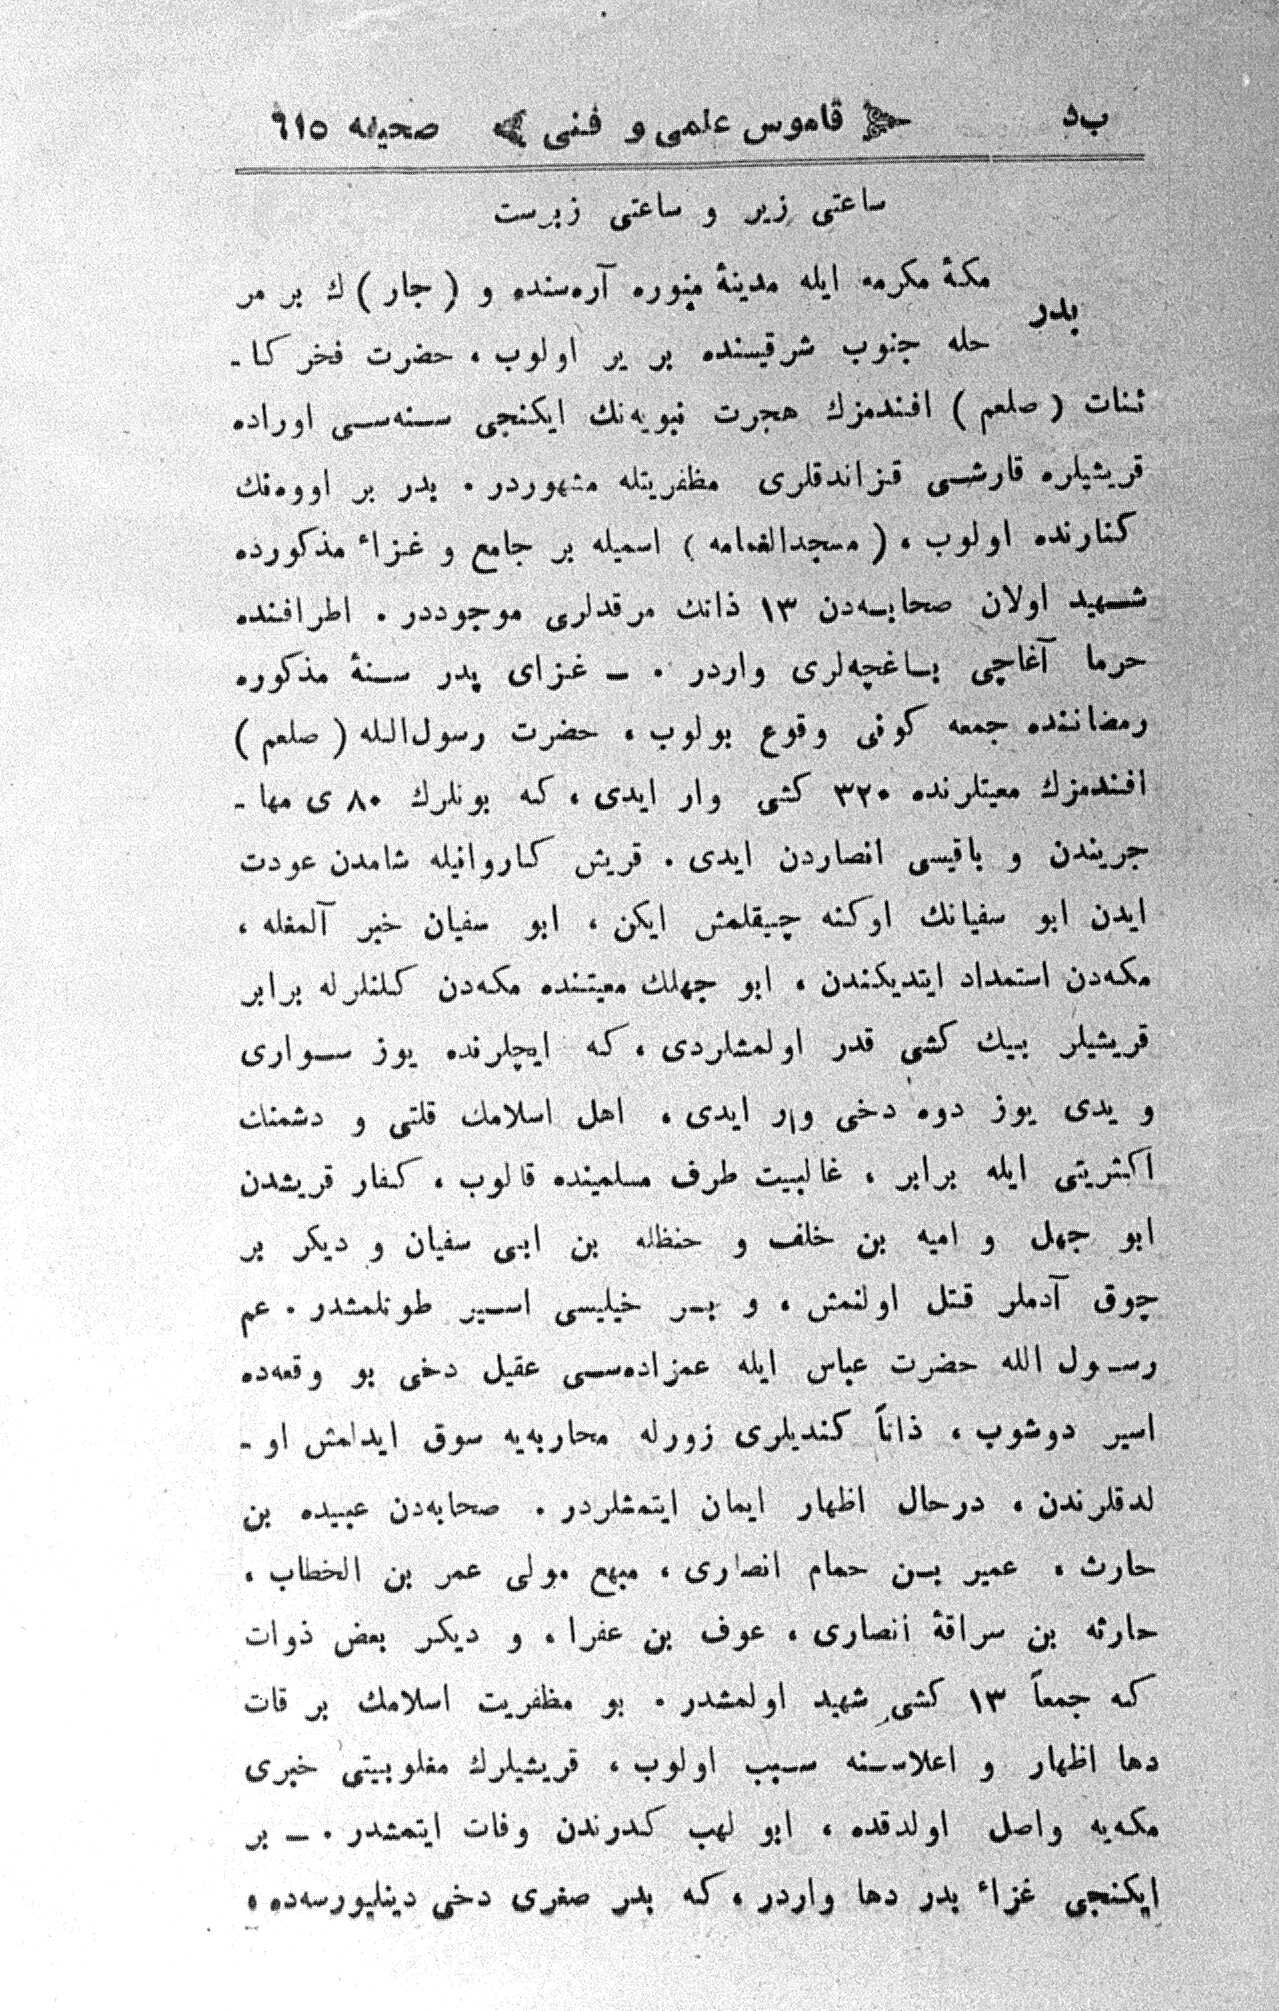 بد
قاموس علمی و فنی
صحیفه ٦١٥
ساعتی زیر و ساعتی زبرست
بدر
مكهٔ مكرمه ایله مدینهٔ منوره آره‌سنده و ( جار ) ك بر مر
حله جنوب شرقیسنده بر یر اولوب ، حضرت فخر كا ـ
ئنات ( صلعم ) افندمزك هجرت نبویه‌نك ایكنجی سنه‌سی اوراده
قریشیلره قارشی قزاندقلری مظفریتله مشهوردر . بدر بر اووه‌نك
كنارنده اولوب ، ( مسجدالغمامه ) اسمیله بر جامع و غزاء مذكورده
شهید اولان صحابه‌دن ١٣ ذاتك مرقدلری موجوددر . اطرافنده
خرما آغاجی باغچه‌لری واردر . ـ غزای بدر سنهٔ مذكوره
رمضاننده جمعه كونی وقوع بولوب ، حضرت رسول‌الله ( صلعم )
افندمزك معیتلرنده ٣٢٠ كشی وار ایدی ، كه بونلرك ٨٠ ی مها ـ
جریندن و باقیسی انصاردن ایدی . قریش كاروانیله شامدن عودت
ایدن ابو سفیانك اوكنه چیقلمش ایكن ، ابو سفیان خبر آلمغله ،
مكه‌دن استمداد ایتدیكندن ، ابو جهلك معیتنده مكه‌دن كلنلرله برابر
قریشیلر بیك كشی قدر اولمشلردی ، كه ایچلرنده یوز سواری
و یدی یوز دوه دخی وار ایدی ، اهل اسلامك قلتی و دشمنك
اكثریتی ایله برابر ، غالبیت طرف مسلمینده قالوب ، كفار قریشدن
ابو جهل و امیه بن خلف و حنظله بن ابی سفیان و دیكر بر
چوق آدملر قتل اولنمش ، و بر خیلیسی اسیر طوتلمشدر . عم
رسول الله حضرت عباس ایله عمزاده‌سی عقیل دخی بو وقعه‌ده
اسیر دوشوب ، ذاتاً كندیلری زورله محاربه‌یه سوق ایدلمش او ـ
لدقلرندن ، درحال اظهار ایمان ایتمشلردر . صحابه‌دن عبیده بن
حارث ، عمیر بن حمام انصاری ، مبهع مولی عمر بن الخطاب ،
حارثه بن سراقهٔ انصاری ، عوف بن عفرا ، و دیكر بعض ذوات
كه جمعاً ١٣ كشی شهید اولمشدر . بو مظفریت اسلامك بر قات
دها اظهار و اعلاسنه سبب اولوب ، قریشیلرك مغلوبیتی خبری
مكه‌یه واصل اولدقده ، ابو لهب كدرندن وفات ایتمشدر . ـ بر
ایكنجی غزاء بدر دها واردر ، كه بدر صغری دخی دینلیورسه‌ده ،